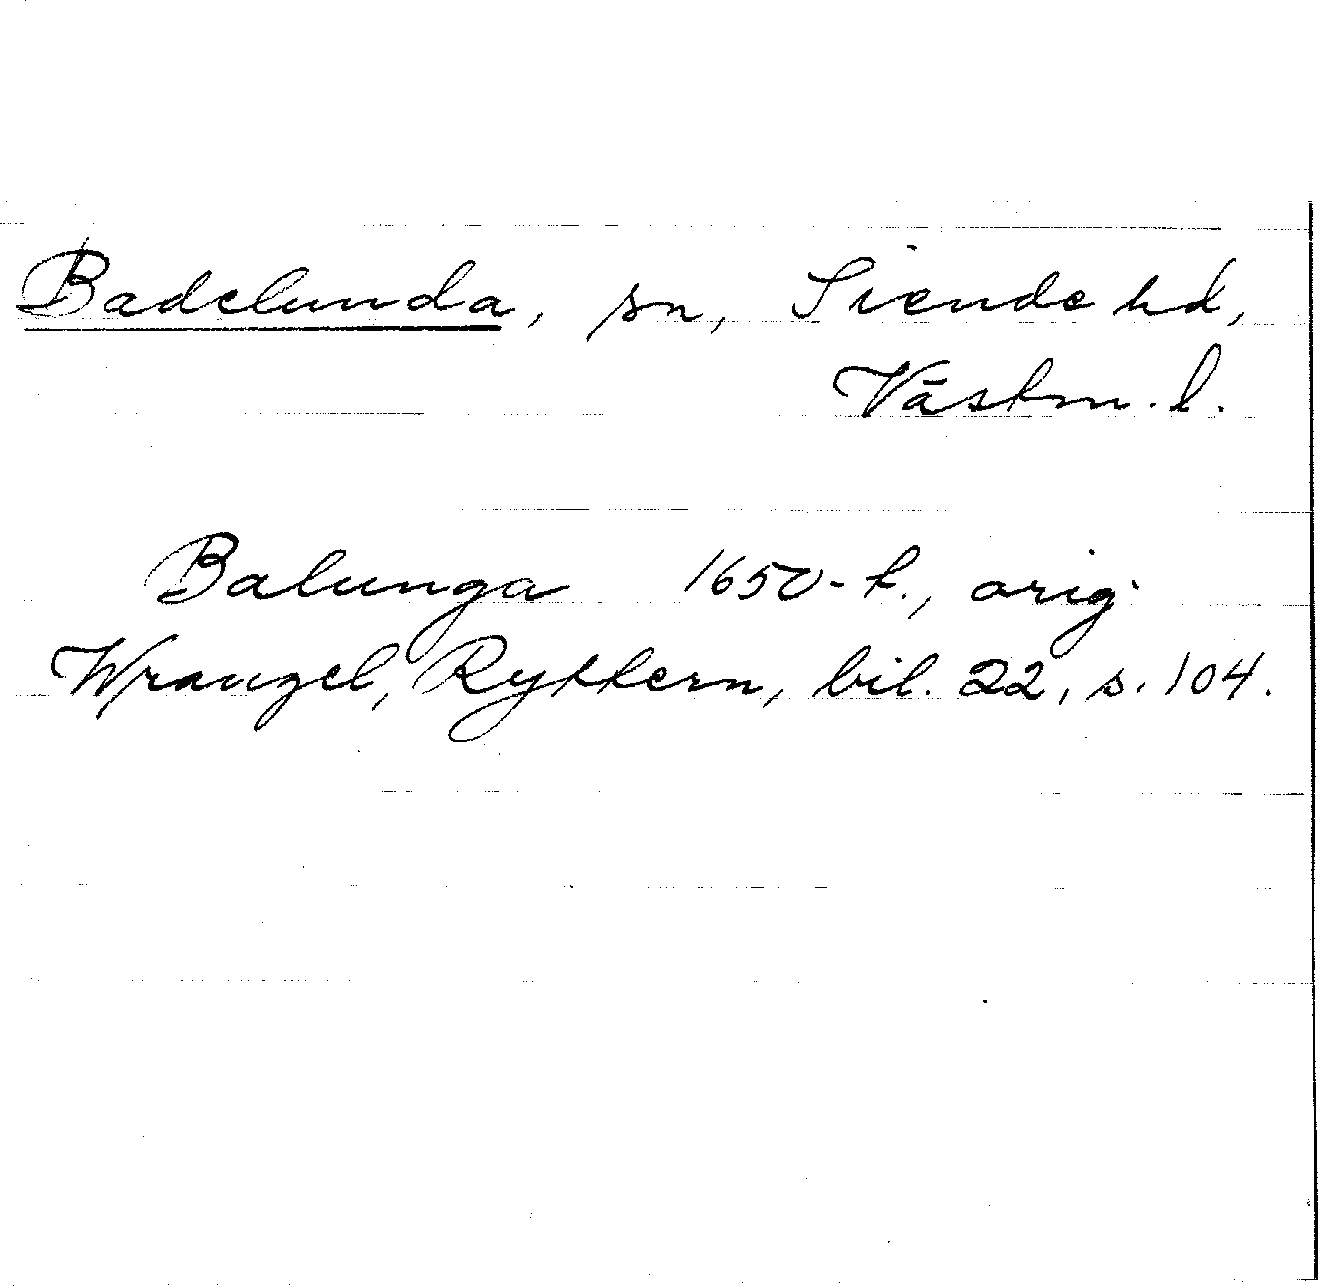 Badelunda, sn, Siende hd,
Västm. l.
Balunga 1650-t., orig.
Wrangel, Ryttern, bil. 22, s. 104.